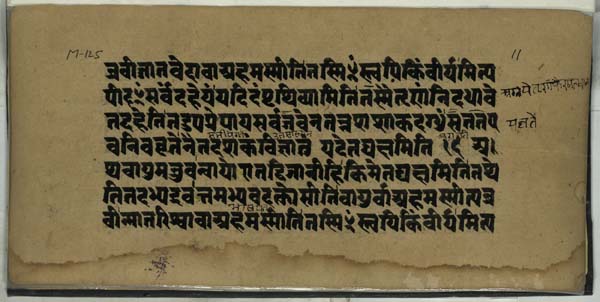 M-125
11
ब्रवीज्जातवेदावाअहमस्मीतितस्मिँस्त्वयिकिंवीर्यमित्य
पीदँसर्वंदहेयंयदिदंपृथिव्यामितितस्मैतृणंनिदधावे
तद्दहेतितदुपप्रेयायसर्वजवेनतन्नशशाकदग्धुंसततए
वनिववृतेनैतदशकंविज्ञातुंयदेतद्यक्षमिति १९ अ
थवायुमब्रुवन्वायोएतद्विजानीहिकिमेतद्यक्षमितितथे
तितदभ्यद्रवत्तमभ्यवदत्कोसीतिवायुर्वाअहमस्मीत्यब्र
वीन्मातरिश्वावाअहमस्मीतितस्मिँस्त्वयिकिंवीर्यमित्य